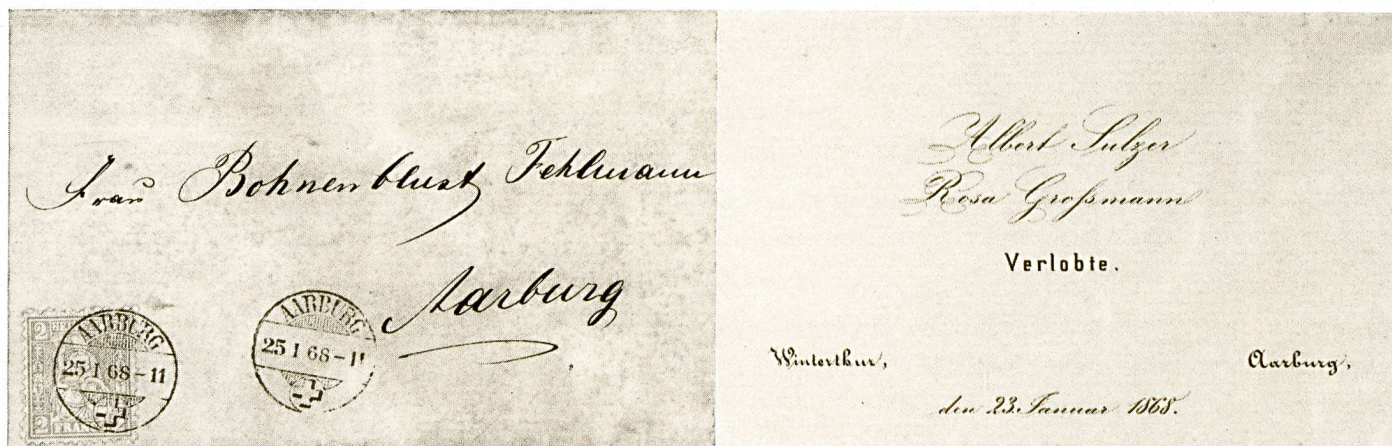 Frau Bohnenblust Fehlmann
Aarburg
2
AARBURG
25 I 68-11
2
2
AARBURG
25 I 68-11
Albert Sulzer
Rosa Großmann
Verlobte.
Winterthur, Aarburg,
den 23. Januar 1868.